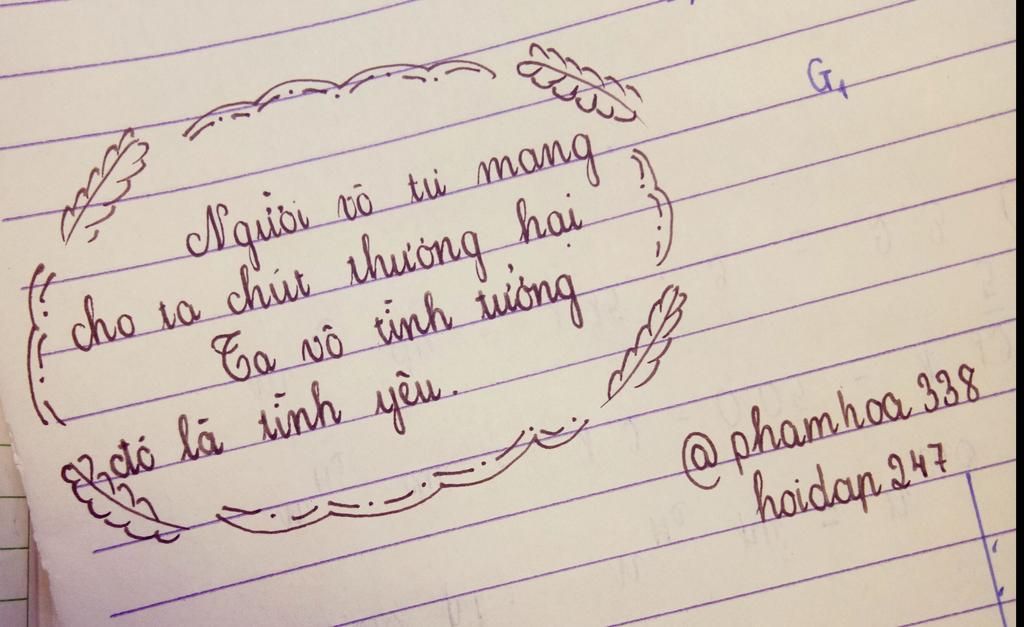 G,
Người vô tư mang
cho ta chút thương hại
Ta vô tình tưởng
đó là tình yêu.
@phamhoa338
hoidap247